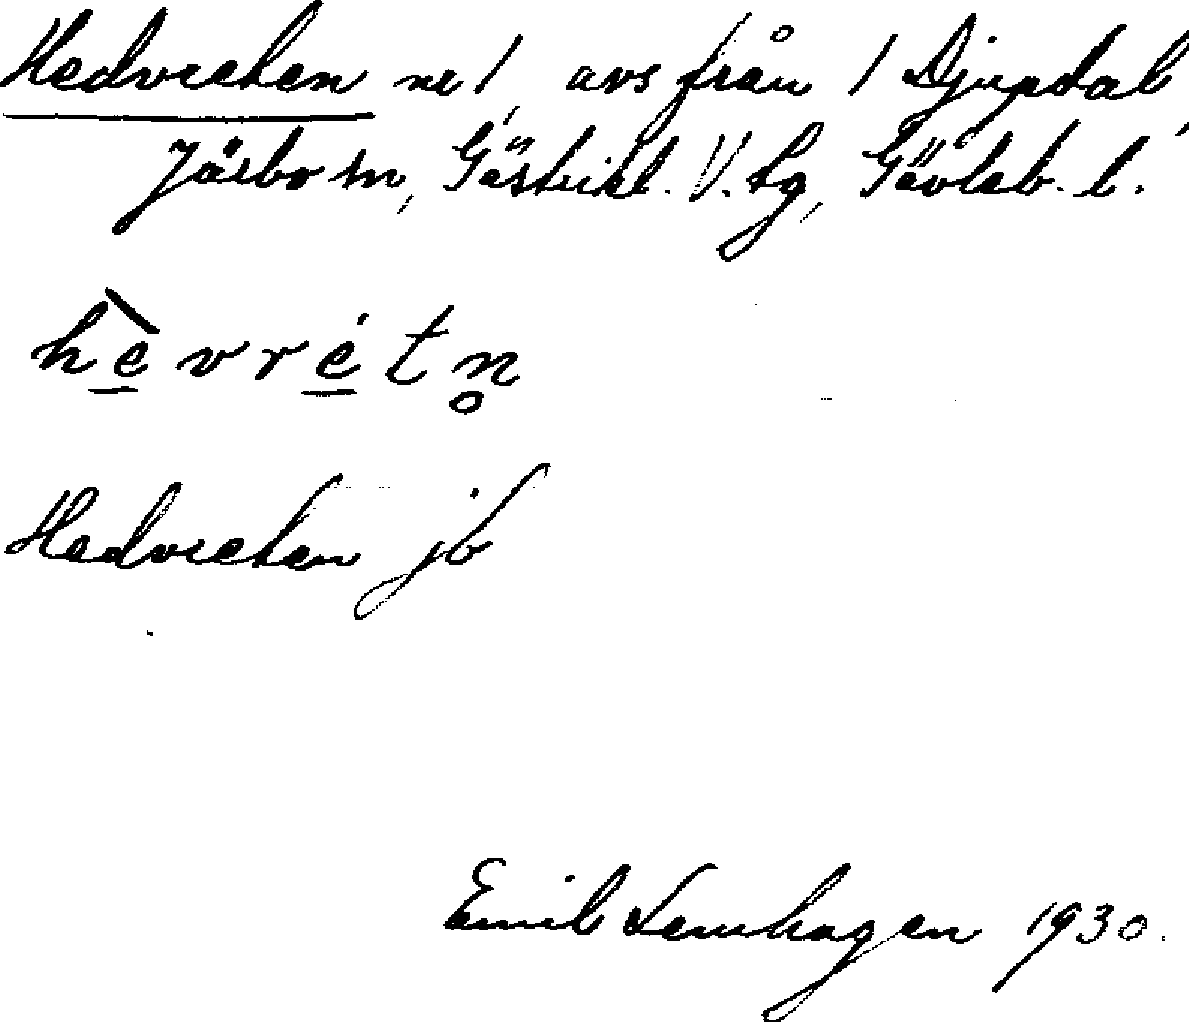 Hedvreten nr 1, avs från 1 Djupdal,
Järbo sn, Gästrikl. V. tg, Gävleb. l.
hèvrétn̥
Hedvreten jb
Emil Lemhagen 1930.